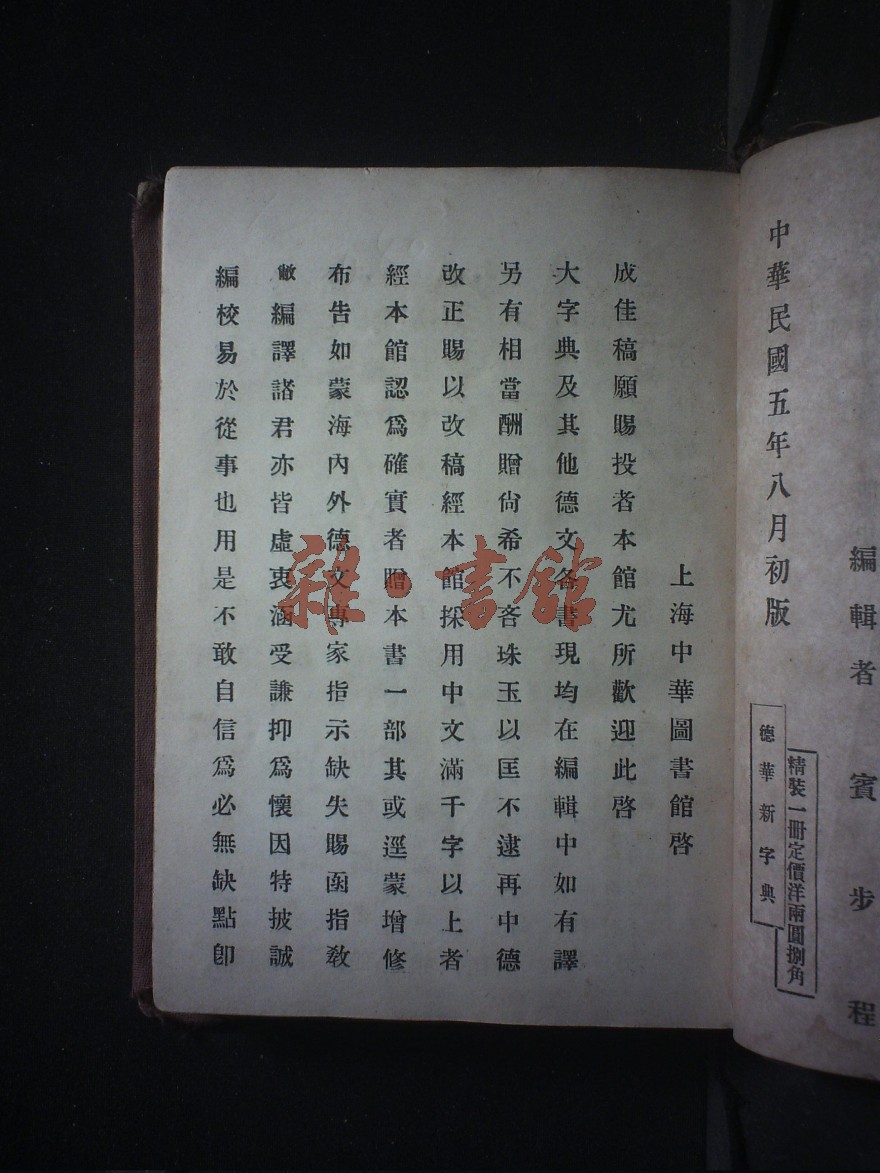 編校易於從事也用是不敢自信爲必無缺點卽
敝編譯諸君亦皆虛衷涵受謙抑爲懷因特披誠
布告如蒙海內外德文專家指示缺失賜函指敎
經本館認爲確實者贈本書一部其或逕蒙增修
改正賜以改稿經本館採用中文滿千字以上者
另有相當酬贈尙希不吝珠玉以匡不逮再中德
大字典及其他德文各書現均在編輯中如有譯
成佳稿願賜投者本館尤所歡迎此啓
上海中華圖書館啓
中華民國五年八月初版
德華新字典
精裝一冊定價洋兩圓捌角
編輯者賓步程
雜·書館